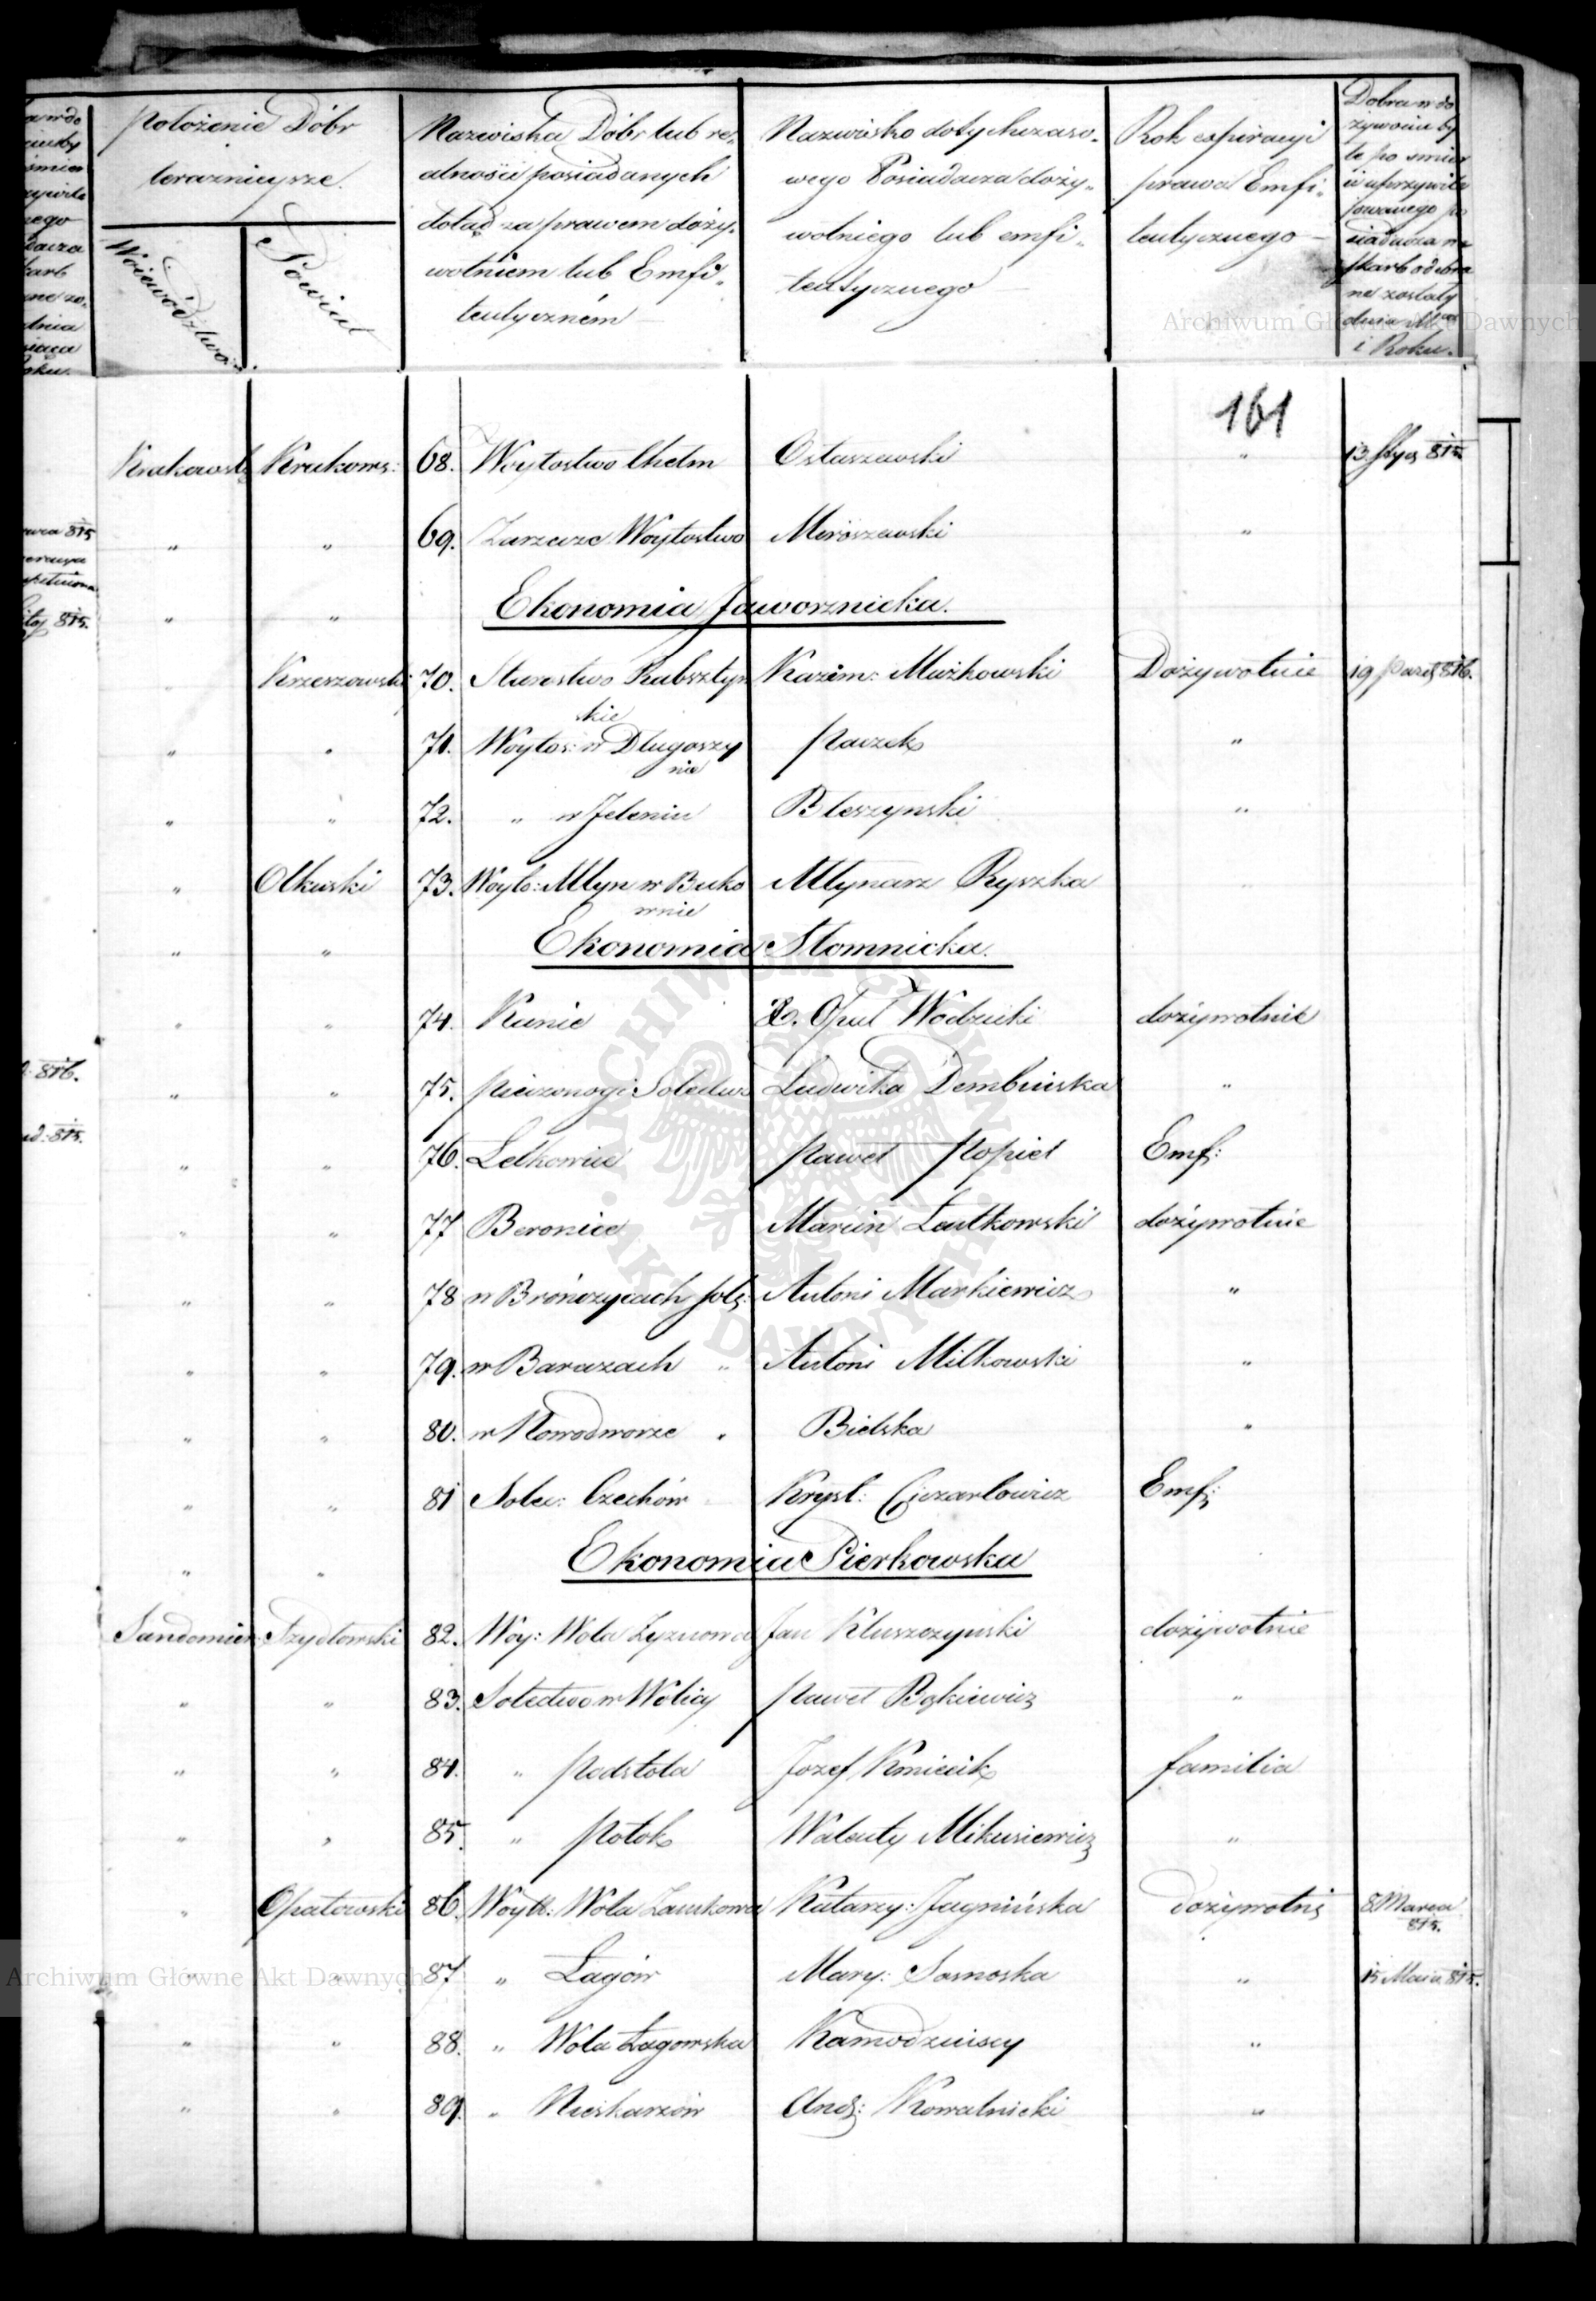 położenie Dóbr
teraznieysze.
Woiewództwo
Powiat
Nazwiska Dóbr lub re„
alności posiadanych
dotąd za prawem doży„
wotniem lub Emfi„
teutyczném
Nazwisko dotychczaso„
wego Posiadacza doży„
wotniego lub emfi„
teutycznego
Rok expiracyi
prawa Emfi„
teutycznego
Dobra w do
żywociu by
łe po śmier
ci uprzywile
jowanego po
siadacza na
skarb odebra
ne zostały
dnia Mca
i Roku.
161
Krakowsk Krakows: 68. Woytostwo Chełm Ostaszewski „ 13 Stycz 815.
„ „ 69. Zarzecze Woytostwo Mieroszewski „
„ „ Ekonomia Jaworznicka.
Krzeszowski 70. Starostwo Rabsztyn Kazim: Mażkowski Dożywotnie 19 Paźdz 816.
skie
„ „ 71. Woytos: w Długoszy Paczek „
nie
„ „ 72. „ w Jeleniu Bleszynski „
„ Olkuski 73. Woyto: Młyn w Buko Młynarz Ryszka
wnie
„ „ Ekonomia Słomnicka.
„ „ 74. Kanie X. Opat Wodzicki dożywotnie
„ „ 75. Pieczonogi Sołectwo Ludwika Dembinska „
„ „ 76. Lelkowice Paweł Popiel Emf:
„ „ 77 Beronice Marcin Lautkowski dożywotnie
„ „ 78 w Brończycach sołe: Antoni Markiewicz „
„ „ 79. w Barazach „ Antoni Milkowski „
„ „ 80. w Nowodworze „ Bielska „
„ „ 81 Sołec: Czechów Kryst: Ciezarlowicz Emf:
„ „ Ekonomia Pierkowska
Sandomier Szydłowski 82. Woy: Wola Zyznowa Jan Kluszczynski dożywotnie
„ „ 83. Sołectwo w Wolicy Paweł Bąkiewicz „
„ „ 84. „ Podstoła Jozef Kmiecik familia
„ „ 85. „ Potok Walenty Mikusiewicz „
„ Opatowski 86. Woyt: Wola Zamkowa Katarzy: Jagnińska dożywotnie 8. Marca
815.
„ „ 87 „ Łagów Mary: Sosnoska „ 15 Maia 815.
„ „ 88. „ Wola Łagowska Kamodzinscy „
„ „ 89. „ Nieskarzów Andz: Kowalnicki „
Archiwum Główne Akt Dawnych
Archiwum Główne Akt Dawnych
ARCHIWUM GŁÓWNE AKT DAWNYCH